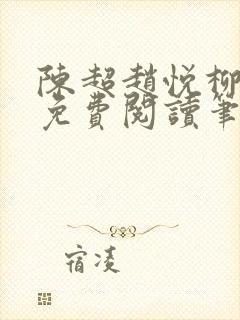 陳超趙悦柳
免費閱讀筆
宿凌